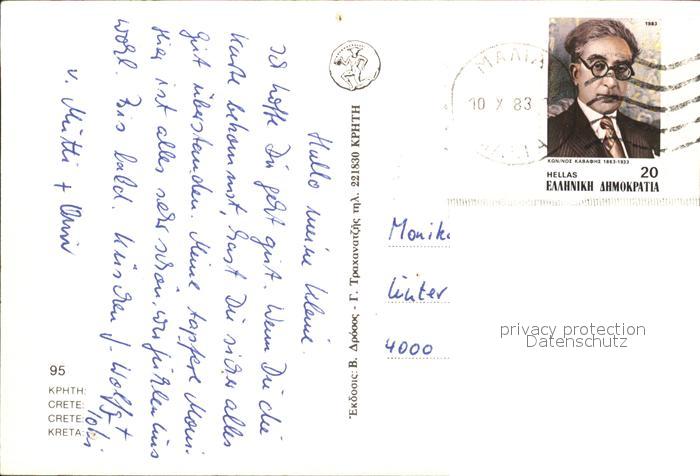 Hallo meine Kleine.
Ich hoffe Dir geht gut. Wenn Du die
Karte bekommst, hast Du sicher alles
gut überstanden. Meine tapfere Moni.
Hier ist alles sehr schön, wir fühlen uns
wohl. Bis bald. Küsschen J- Wolfg. +
Tobi
v. Mutti +
Έκδοσις: Β. Δρόσος - Γ. Τραχανατζής τηλ. 221830 ΚΡΗΤΗ
ΜΑΛΙΑ
10 X 83
1983
ΚΩΝ/ΝΟΣ ΚΑΒΑΦΗΣ 1863-1933
HELLAS 20
ΕΛΛΗΝΙΚΗ ΔΗΜΟΚΡΑΤΙΑ
Monik
Unter
4000
privacy protection
Datenschutz
95
ΚΡΗΤΗ:
CRETE:
CRETE:
KRETA: